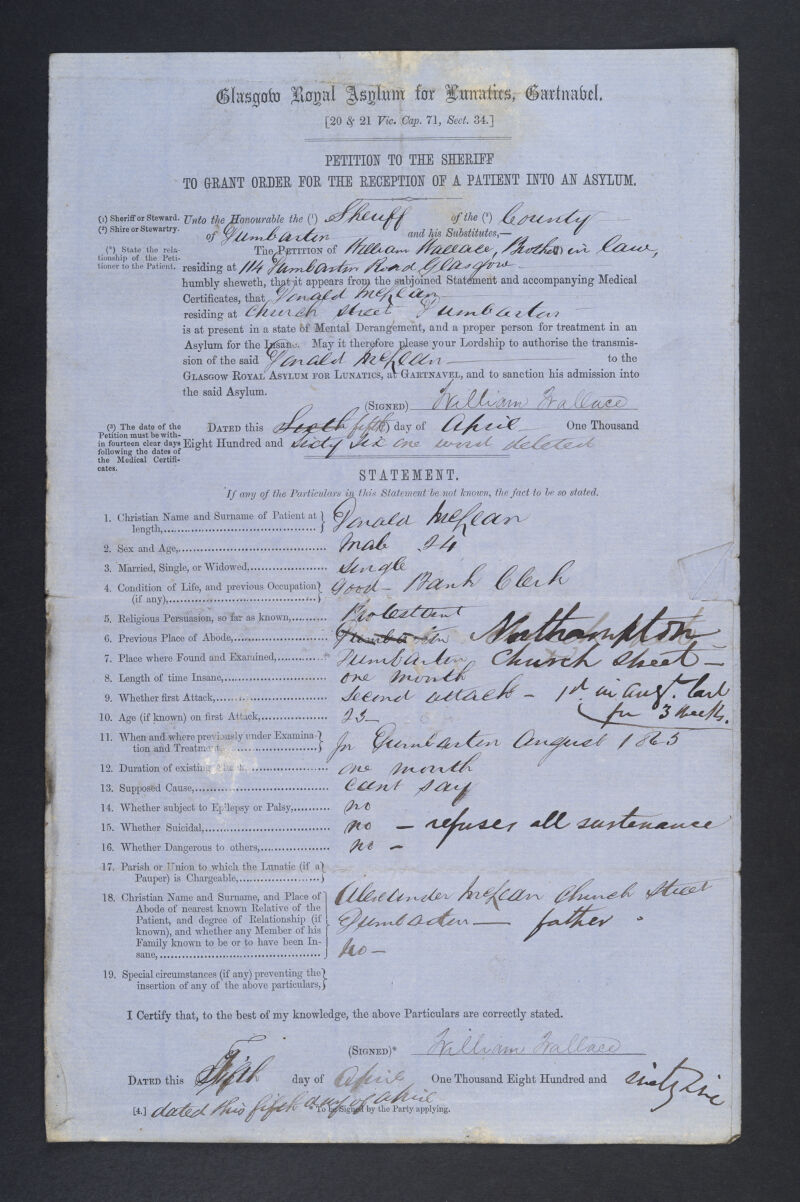 Glasgow Royal Asylum for Lunatics, Gartnavel.
[20 & 21 Vic. Cap. 71, Sect. 34.]
PETITION TO THE SHERIFF
TO GRANT ORDER FOR THE RECEPTION OF A PATIENT INTO AN ASYLUM.
(1) Sheriff or Steward.
(2) Shire or Stewartry.
Unto the Honourable the (1) Sheriff of the (2) County
of Dumbarton and his Substitutes,—
(3) State the relationship of the Petitioner to the Patient.
The PETITION of William Wallace, Brother in law,
residing at 114 Dumbarton Road Glasgow
humbly sheweth, that it appears from the subjoined Statement and accompanying Medical
Certificates, that Donald McLean
residing at Church Street Dumbarton
is at present in a state of Mental Derangement, and a proper person for treatment in an
Asylum for the Insane. May it therefore please your Lordship to authorise the transmis-
sion of the said Donald McLean to the
GLASGOW ROYAL ASYLUM FOR LUNATICS, at GARTNAVEL, and to sanction his admission into
the said Asylum.
(SIGNED) William Wallace
(3) The date of the Petition must be within fourteen clear days following the dates of the Medical Certificates.
DATED this Sixth fifth day of April One Thousand
Eight Hundred and Sixty Six one word deleted
STATEMENT.
If any of the Particulars in this Statement be not known, the fact to be so stated.
1. Christian Name and Surname of Patient at length, Donald McLean
2. Sex and Age, Male 24
3. Married, Single, or Widowed, Single
4. Condition of Life, and previous Occupation (if any), Good - Bank Clerk
5. Religious Persuasion, so far as known, Protestant
6. Previous Place of Abode, Dumbarton Northampton
7. Place where Found and Examined, Dumbarton Church Street —
8. Length of time Insane, one month
9. Whether first Attack, Second attack - 1st. in augt. last
for 3 weeks.
10. Age (if known) on first Attack, 23 -
11. When and where previously under Examination and Treatment, in Dumbarton August 1865
12. Duration of existing Attack, one month
13. Supposed Cause, cant say
14. Whether subject to Epilepsy or Palsy, no
15. Whether Suicidal, no - refuses all sustenance
16. Whether Dangerous to others, no -
17. Parish or Union to which the Lunatic (if a Pauper) is Chargeable,
18. Christian Name and Surname, and Place of Abode of nearest known Relative of the Patient, and degree of Relationship (if known), and whether any Member of his Family known to be or to have been Insane, Alexander McLean Church Street
Dumbarton — father
No -
19. Special circumstances (if any) preventing the insertion of any of the above particulars,
I Certify that, to the best of my knowledge, the above Particulars are correctly stated.
(SIGNED)* William Wallace
DATED this Fifth day of April One Thousand Eight Hundred and
[4.] dated this fifth day of April
* To be Signed by the Party applying.